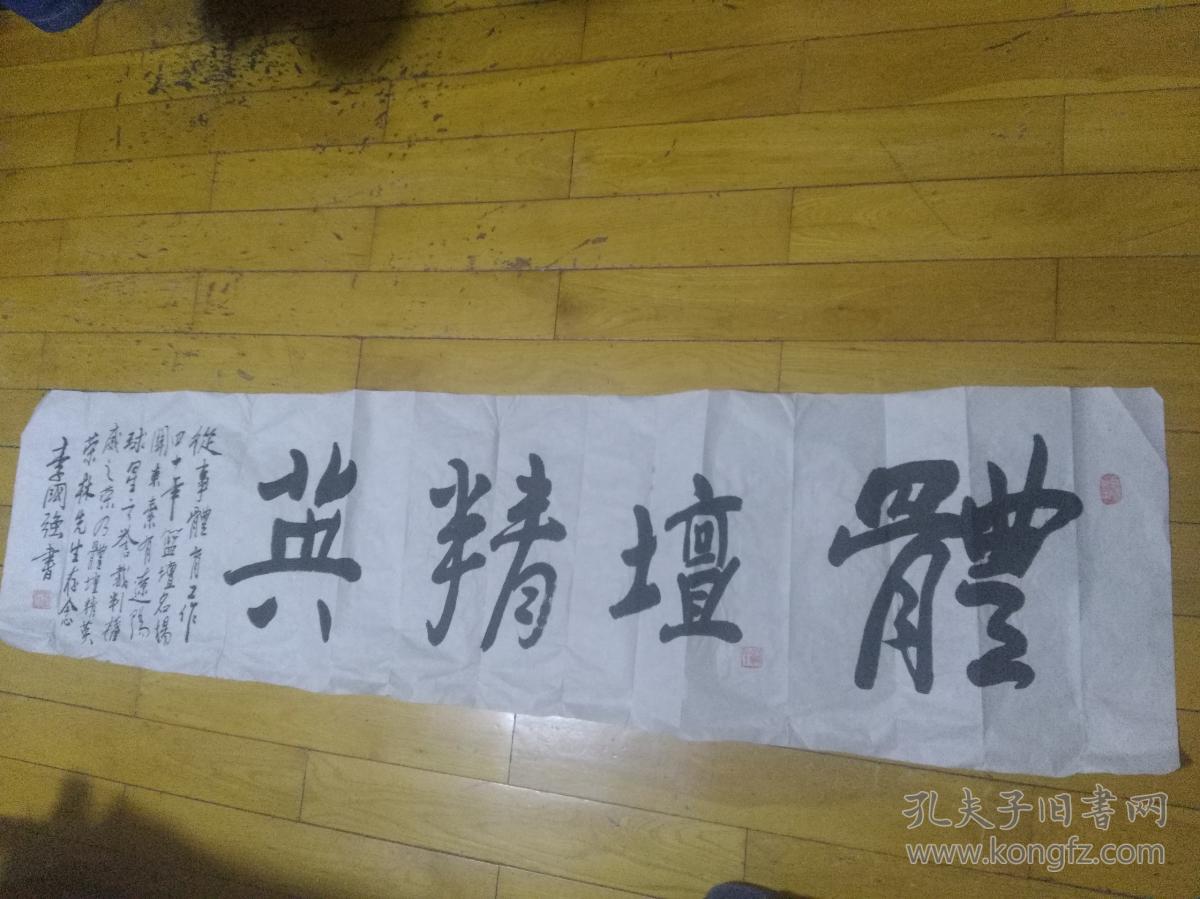 體壇精英
從事體育工作
四十年籃壇名揚
關東素有遼陽
球星之譽裁判權
威之榮乃體壇精英
荣林先生存念
李國強書
孔夫子旧書网
www.kongfz.com